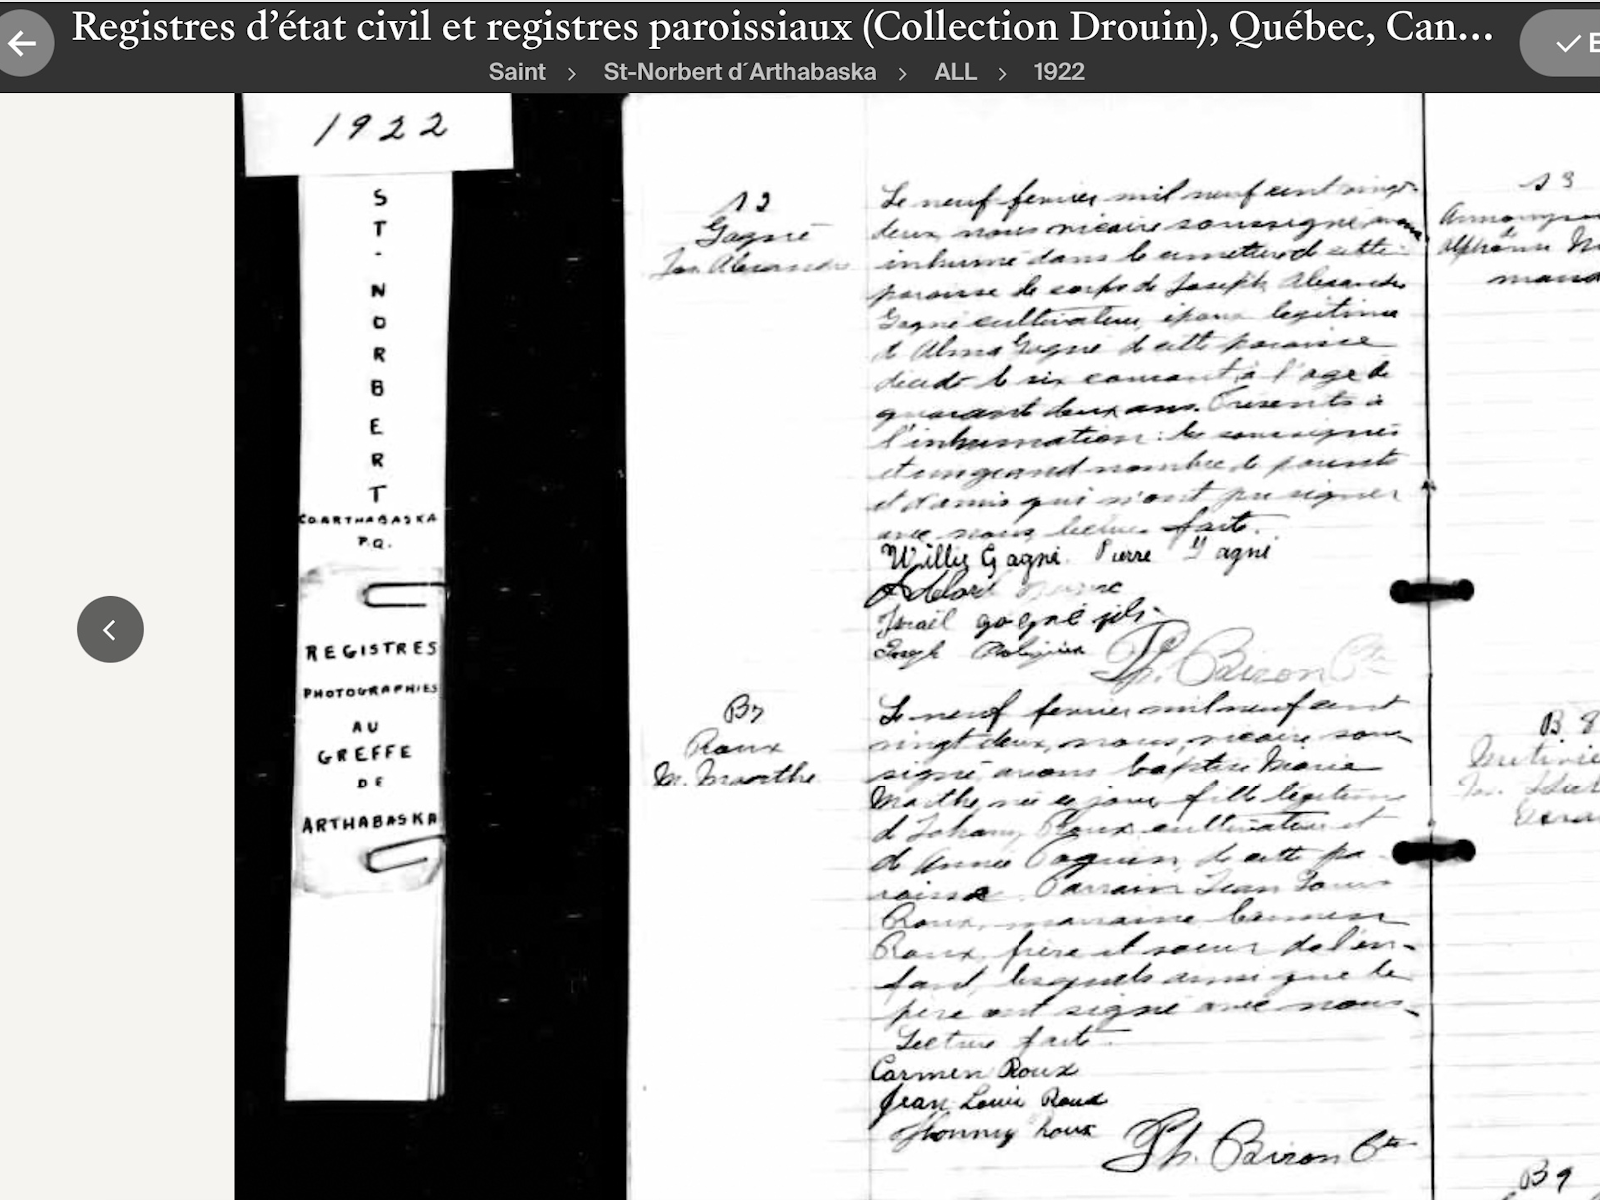 Registres d’état civil et registres paroissiaux (Collection Drouin), Québec, Can...
Saint > St-Norbert d´Arthabaska > ALL > 1922
1922
ST-NORBERT
CO. ARTHABASKA
P.Q.
REGISTRES
PHOTOGRAPHIES
AU
GREFFE
DE
ARTHABASKA
S 2
Gagné
Jos. Alexandre
Le neuf fevrier mil neuf cent vingt-
deux, nous vicaire soussigné, avons
inhumé dans le cimetière de cette
paroisse le corps de Joseph Alexandre
Gagné cultivateur, époux legitime
de Alma Gagné de cette paroisse
décédé le six courant, à l'age de
quarant deux ans. Présents à
l'inhumation: les soussignés
et un grand nombre de parents
et d'amis qui n'ont pu signer
avec nous. lecture faite.
Willie Gagné. Pierre Gagné
Israël gagné fils.
Joseph
Ph. Biron Ptre
B7
Roux
M. Marthe
Le neuf fevrier mil neuf cent
vingt deux, nous, vicaire sous-
signé avons baptisé Marie
Marthe, née ce jour, fille légitime
d Johnny Roux cultivateur et
de Année Paquin, de cette pa-
roisse. Parrain Jean Louis
Roux, marraine Carmen
Roux, frère et soeur de l'en-
fant, lesquels ainsi que le
père ont signé avec nous.
Lecture faite.
Carmen Roux
Jean Louis Roux
Jhonny Roux
Ph. Biron Ptre
S 3
B 8
B 9